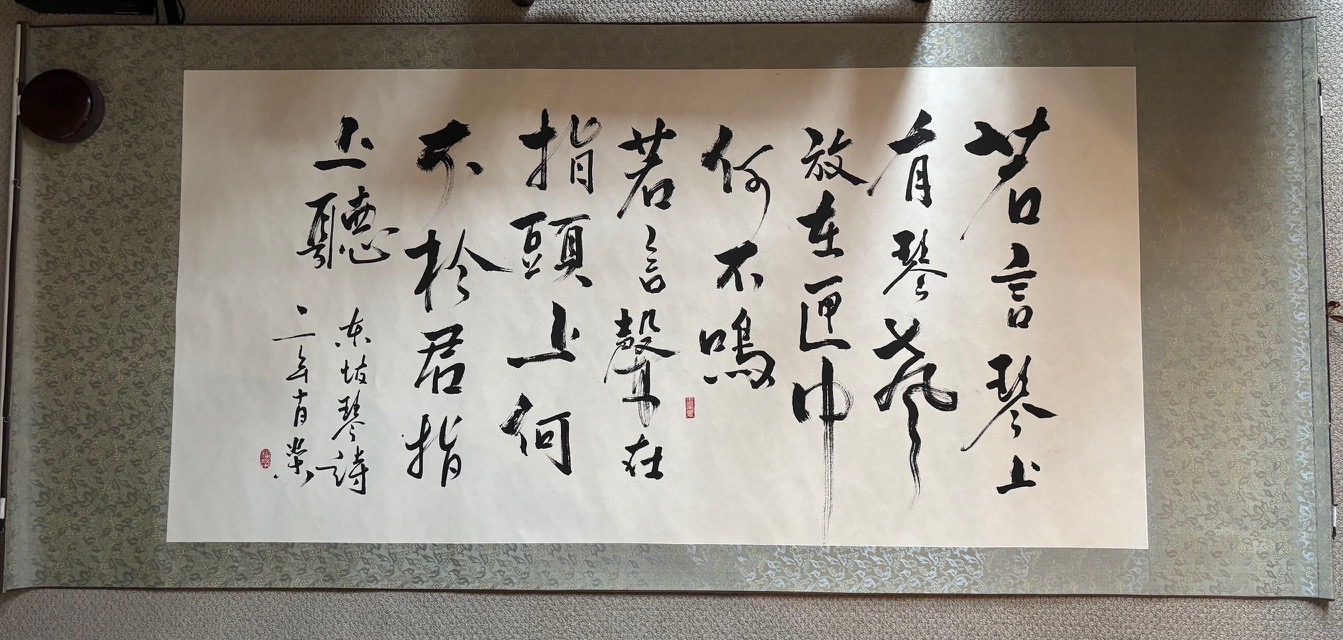 若言琴上
有琴声
放在匣中
何不鳴
若言聲在
指頭上何
不於君指
上聽
东坡琴詩
二年